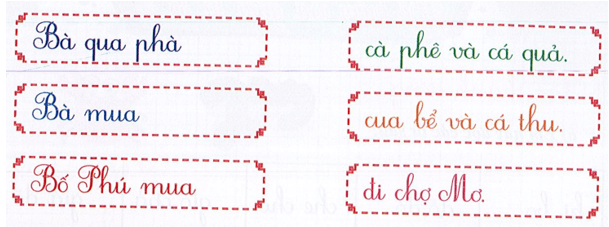 Bà qua phà
cà phê và cá quả.
Bà mua
cua bể và cá thu.
Bố Phú mua
đi chợ Mơ.